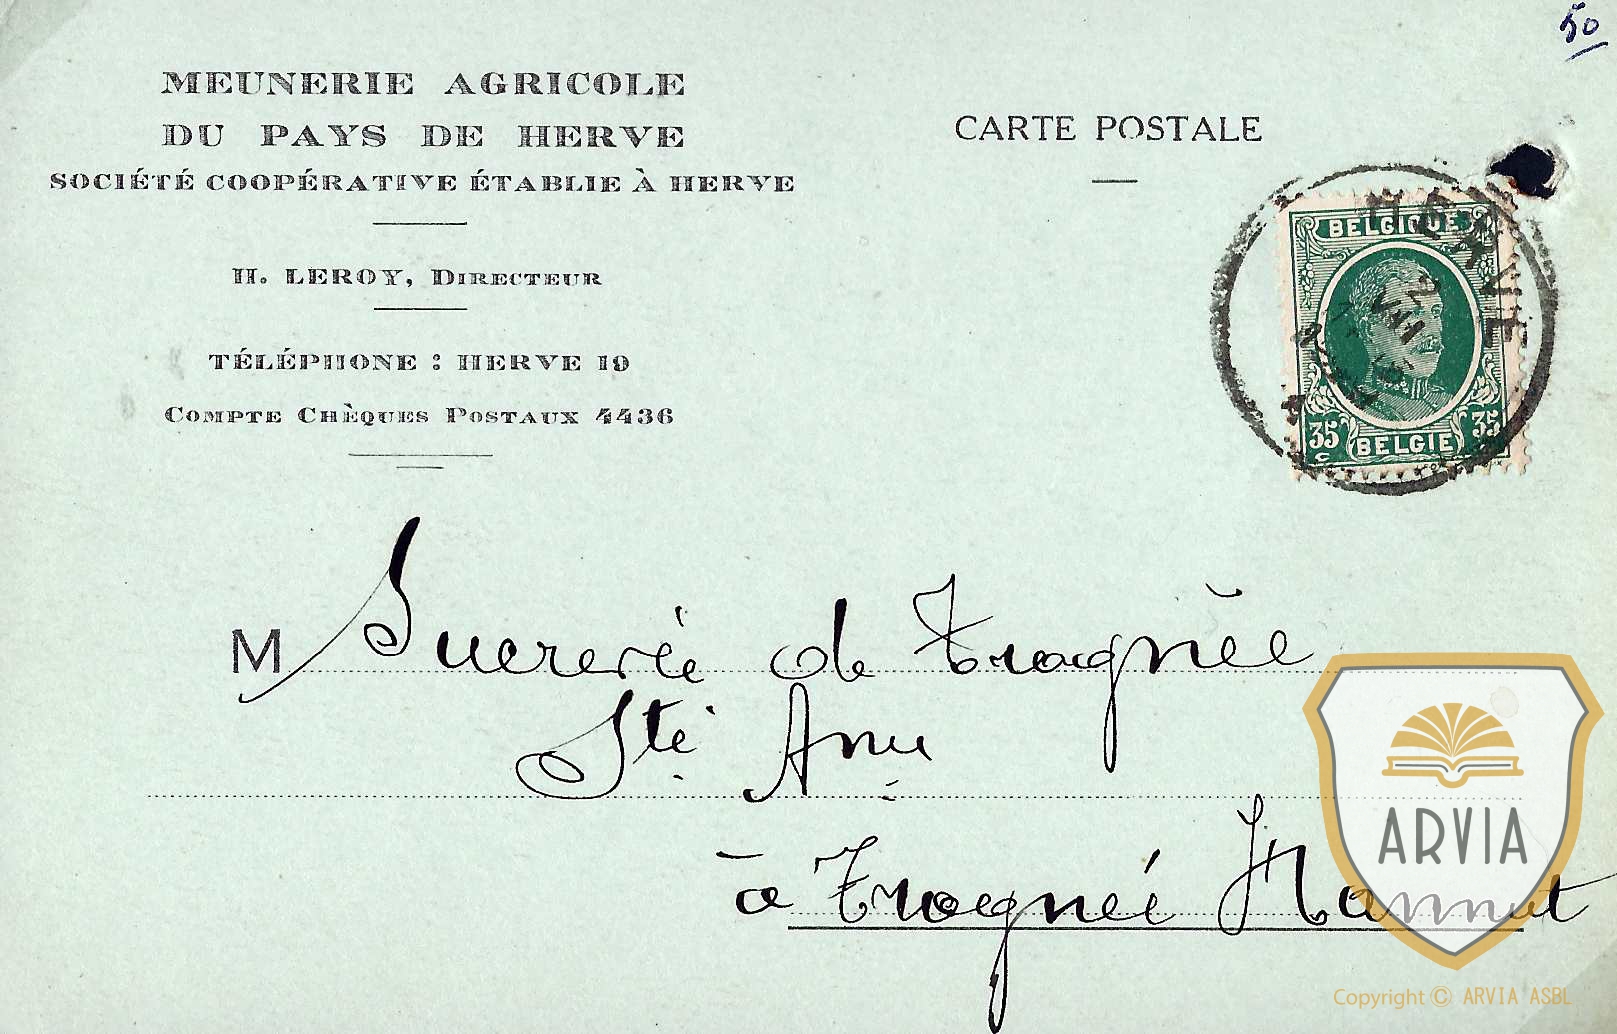 50
MEUNERIE AGRICOLE
DU PAYS DE HERVE
SOCIÉTÉ COOPÉRATIVE ÉTABLIE À HERVE
H. LEROY, DIRECTEUR
TÉLÉPHONE : HERVE 19
COMPTE CHÈQUES POSTAUX 4436
CARTE POSTALE
HERVE
BELGIQUE
35 c BELGIE 35
M Sucrerie de Trognée
Sté Anie
à Trognée Hannut
ARVIA
Copyright © ARVIA ASBL